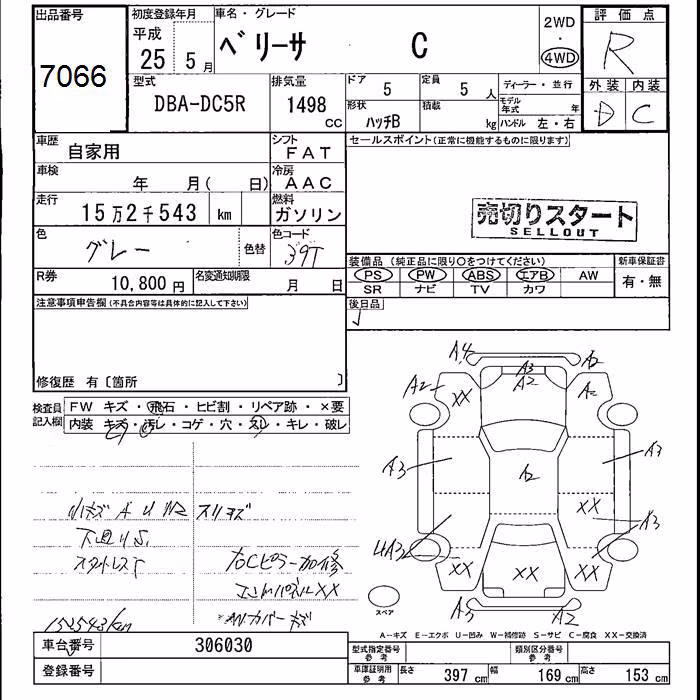 出品番号 初度登録年月 車名・グレード 2WD 評価点
7066 平成 25年 5月 ベリーサ C ・ 4WD R
型式 排気量 ドア 定員 ディーラー・並行 外装 内装
DBA-DC5R 1498 CC 5 5人 モデル 年式 D C
形状 ハッチB 積載 kg ハンドル 左・右
車歴 自家用 シフト FAT セールスポイント(正常に機能するものに限ります)
車検 年 月( 日) 冷房 AAC
走行 15万2千543 km 燃料 ガソリン
売切りスタート
SELLOUT
色 グレー 色替 色コード 39T
装備品(純正品に限り○をつけてください) 新車保証書
PS PW ABS エアB AW 有・無
SR ナビ TV カワ
R券 10,800円 名変通知期限 月 日
後日品
注意事項申告欄(不具合内容等は具体的に記入して下さい)
修復歴 有〔箇所 〕
検査員記入欄
FW キズ・飛石・ヒビ割・リペア跡・×要
内装 キズ・汚レ・コゲ・穴・スレ・キレ・破レ
A4 A3 A2 A2
A2 XX A2
A3 A2 A3
XX
UA3 A3
XX XX XX
A3 A2
小キズ A U W2 スリキズ
下廻りS
スタッドレスT
右Cピラー加修
エンドパネルXX
152543km
スペア
A−キズ E−エクボ U−凹み W−補修跡 S−サビ C−腐食 XX−交換済
車台番号 306030
登録番号
型式指定番号 参考 類別区分番号 参考
車庫証明用 参考 長さ 397 cm 幅 169 cm 高さ 153 cm